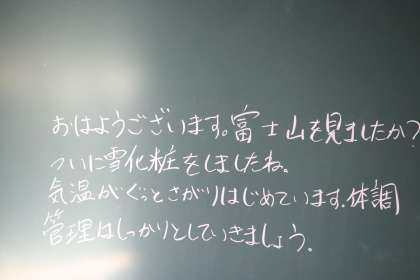 おはようございます。富士山を見ましたか?
ついに雪化粧をしましたね。
気温がぐっとさがりはじめています。体調
管理はしっかりとしていきましょう。